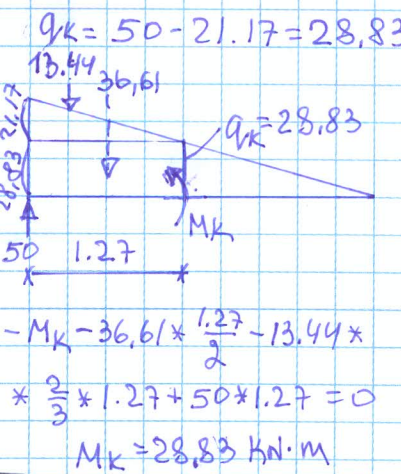 qk = 50 - 21.17 = 28,83
13.44
36,61
21.17
qk = 28,83
28,83
MK
50
1.27
-MK - 36,61 * 1.27/2 - 13.44 *
* 2/3 * 1.27 + 50 * 1.27 = 0
MK = 28,83 KN·m